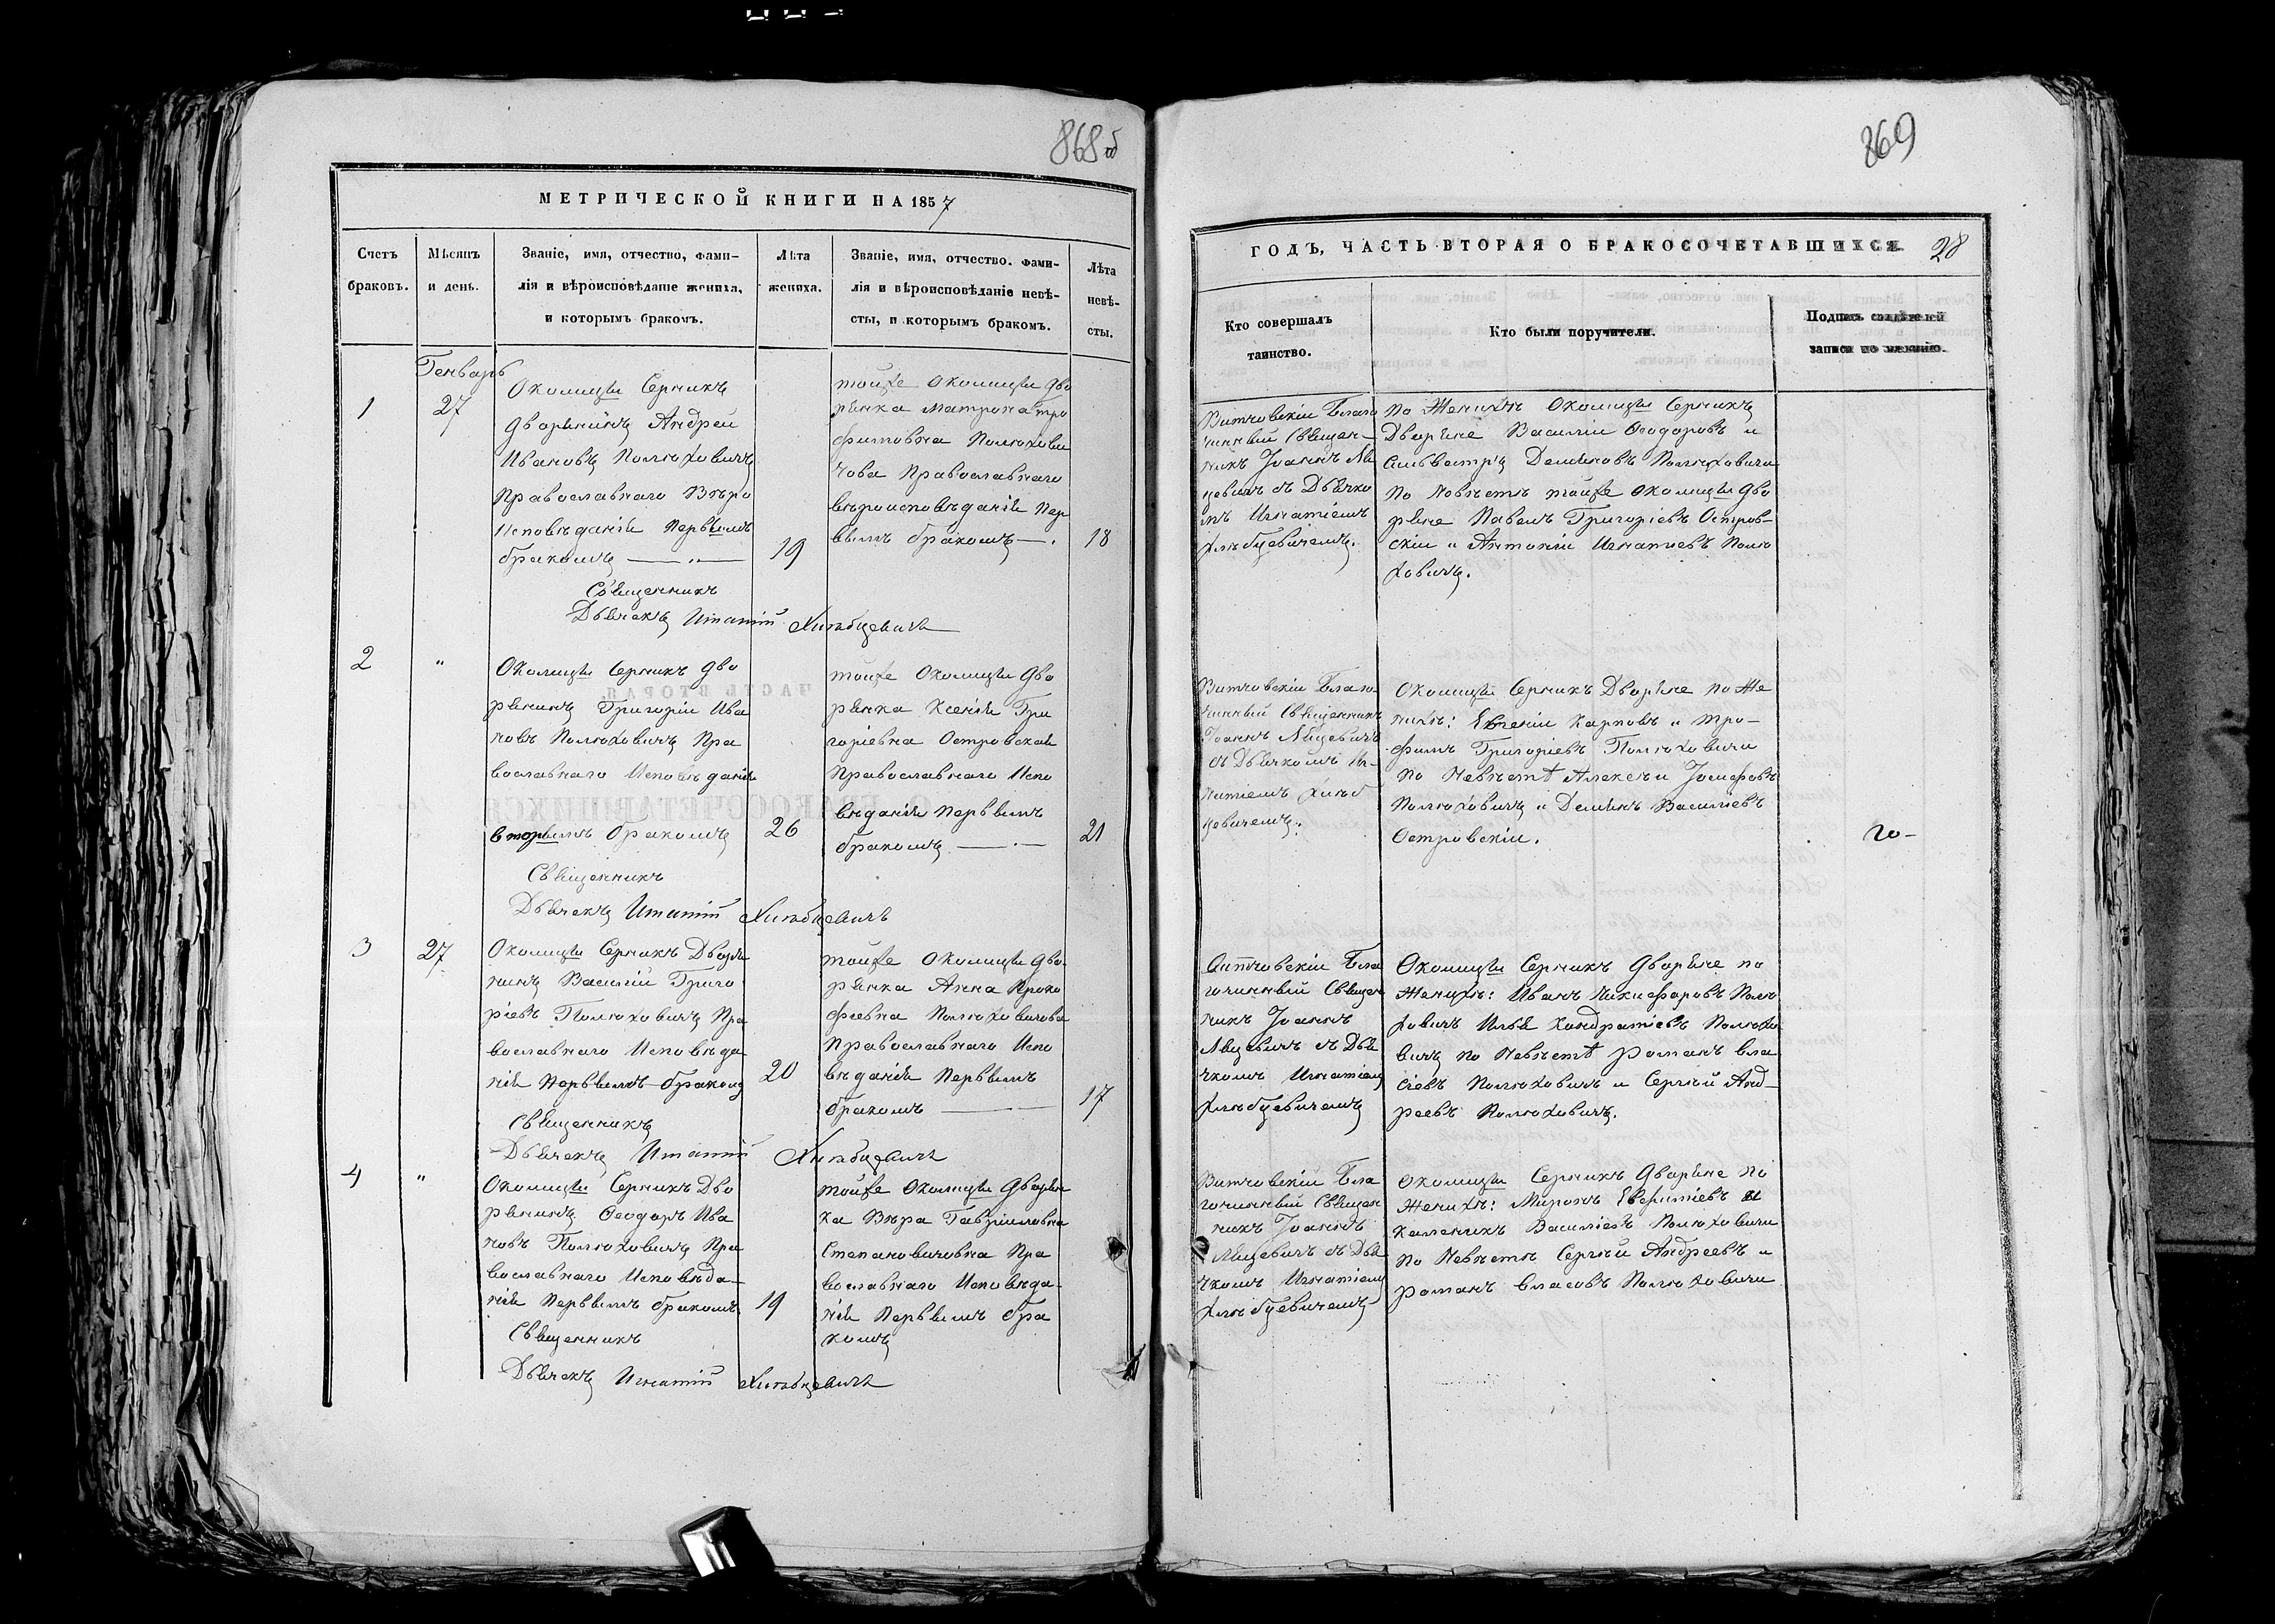 868 об
МЕТРИЧЕСКОЙ КНИГИ НА 1857
Счетъ
браковъ.
Мѣсяцъ
и день.
Званіе, имя, отчество, фами-
лія и вѣроисповѣданіе жениха,
и которымъ бракомъ.
Лѣта
жениха.
Званіе, имя, отчество, фами-
лія и вѣроисповѣданіе невѣ-
сты, и которымъ бракомъ.
Лѣта
невѣ-
сты.
1
Генварь
27
Околицы Серникъ
дворянинъ Андрей
Ивановъ Полюховичъ
Православнаго Вѣро
Исповѣданія первымъ
бракомъ
19
тойже Околицы дво
рянка Матрона Тро
фимовна Полюхови
чова Православнаго
вѣроисповѣданія пер
вымъ бракомъ
18
Священникъ
Дьячекъ Игнатій Хлѣбцевичъ
2
"
Околицы Серникъ дво
рянинъ Григорій Ива
новъ Полюховичъ Пра
вославнаго Исповѣданія
вторымъ бракомъ
26
тойже Околицы дво
рянка Ксенія Гри
горіевна Островская
Православнаго Испо
вѣданія первымъ
бракомъ
21
Священникъ
Дьячекъ Игнатій Хлѣбцевичъ
3
27
Околицы Серникъ Дворя
нинъ Василій Григо
ріевъ Полюховичъ Пра
вославнаго Исповѣда
нія первымъ бракомъ
20
тойже Околицы дво
рянка Анна Проко
фіевна Полюховичова
Православнаго Испо
вѣданія первымъ
бракомъ
17
Священникъ
Дьячекъ Игнатій Хлѣбцевичъ
4
"
Околицы Серникъ Дво
рянинъ Ѳеодоръ Ива
новъ Полюховичъ Пра
вославнаго Исповѣда-
нія первымъ бракомъ
19
тойже Околицы Дворян
ка Вѣра Гавріиловна
Степановичовна Пра
вославнаго Исповѣда-
нія первымъ бра
комъ
Священникъ
Дьячекъ Игнатій Хлѣбцевичъ
869
ГОДЪ, ЧАСТЬ ВТОРАЯ О БРАКОСОЧЕТАВШИХСЯ. 28
Кто совершалъ
таинство.
Кто были поручители.
Подпись свидѣтелей
записи по желанію.
Витчовскій Благо
чинный Священ-
никъ Іоаннъ Ли
цевичъ съ Дьячко
мъ Игнатіемъ
Хлѣбцевичемъ.
По Женихѣ Околицы Серникъ
Дворяне Василій Ѳеодоровъ и
Сильвестръ Демяновъ Полюховичи
По Невѣстѣ тойже Околицы дво
ряне Павелъ Григоріевъ Остров-
скій и Антоній Игнатіевъ Полю
ховичъ.
Витчовскій Благо-
чинный Священникъ
Іоаннъ Лицевичъ
съ Дьячкомъ Иг-
натіемъ Хлѣб
цевичемъ.
Околицы Серникъ Дворяне по Же
нихѣ: Евгеній Карповъ и Тро-
фимъ Григоріевъ Полюховичи
По Невѣстѣ Алексѣй Іосифовъ
Полюховичъ и Демянъ Василіевъ
Островскій.
Витчовскій Бла
гочинный Священ
никъ Іоаннъ
Лицевичъ съ Дья
чкомъ Игнатіемъ
Хлѣбцевичемъ
Околицы Серникъ Дворяне по
Женихѣ: Иванъ Никифоровъ Полю
ховичъ Илья Кондратіевъ Полюхо
вичъ по Невѣстѣ Романъ Вла
сіевъ Полюховичъ и Сергѣй Анд-
реевъ Полюховичъ.
Витчовскій Бла
гочинный Священ
никъ Іоаннъ
Лицевичъ съ Дья
чкомъ Игнатіемъ
Хлѣбцевичемъ
Околицы Серникъ Дворяне по
Женихѣ: Миронъ Евфиміевъ и
Каленикъ Василіевъ Полюховичи
По Невѣстѣ Сергѣй Андреевъ и
Романъ Власовъ Полюховичи